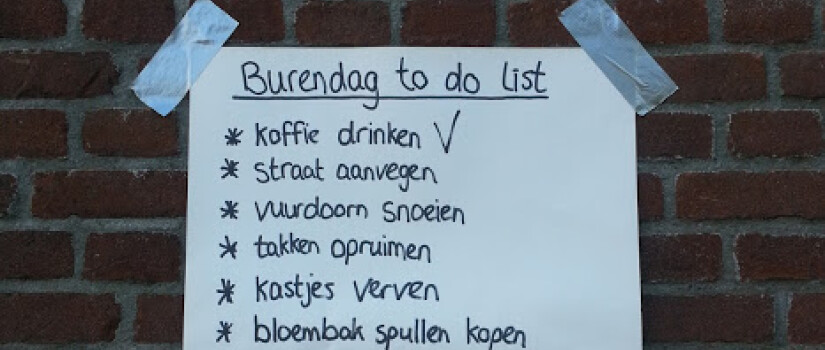 Burendag to do list
* koffie drinken √
* straat aanvegen
* vuurdoorn snoeien
* takken opruimen
* kastjes verven
* bloembak spullen kopen